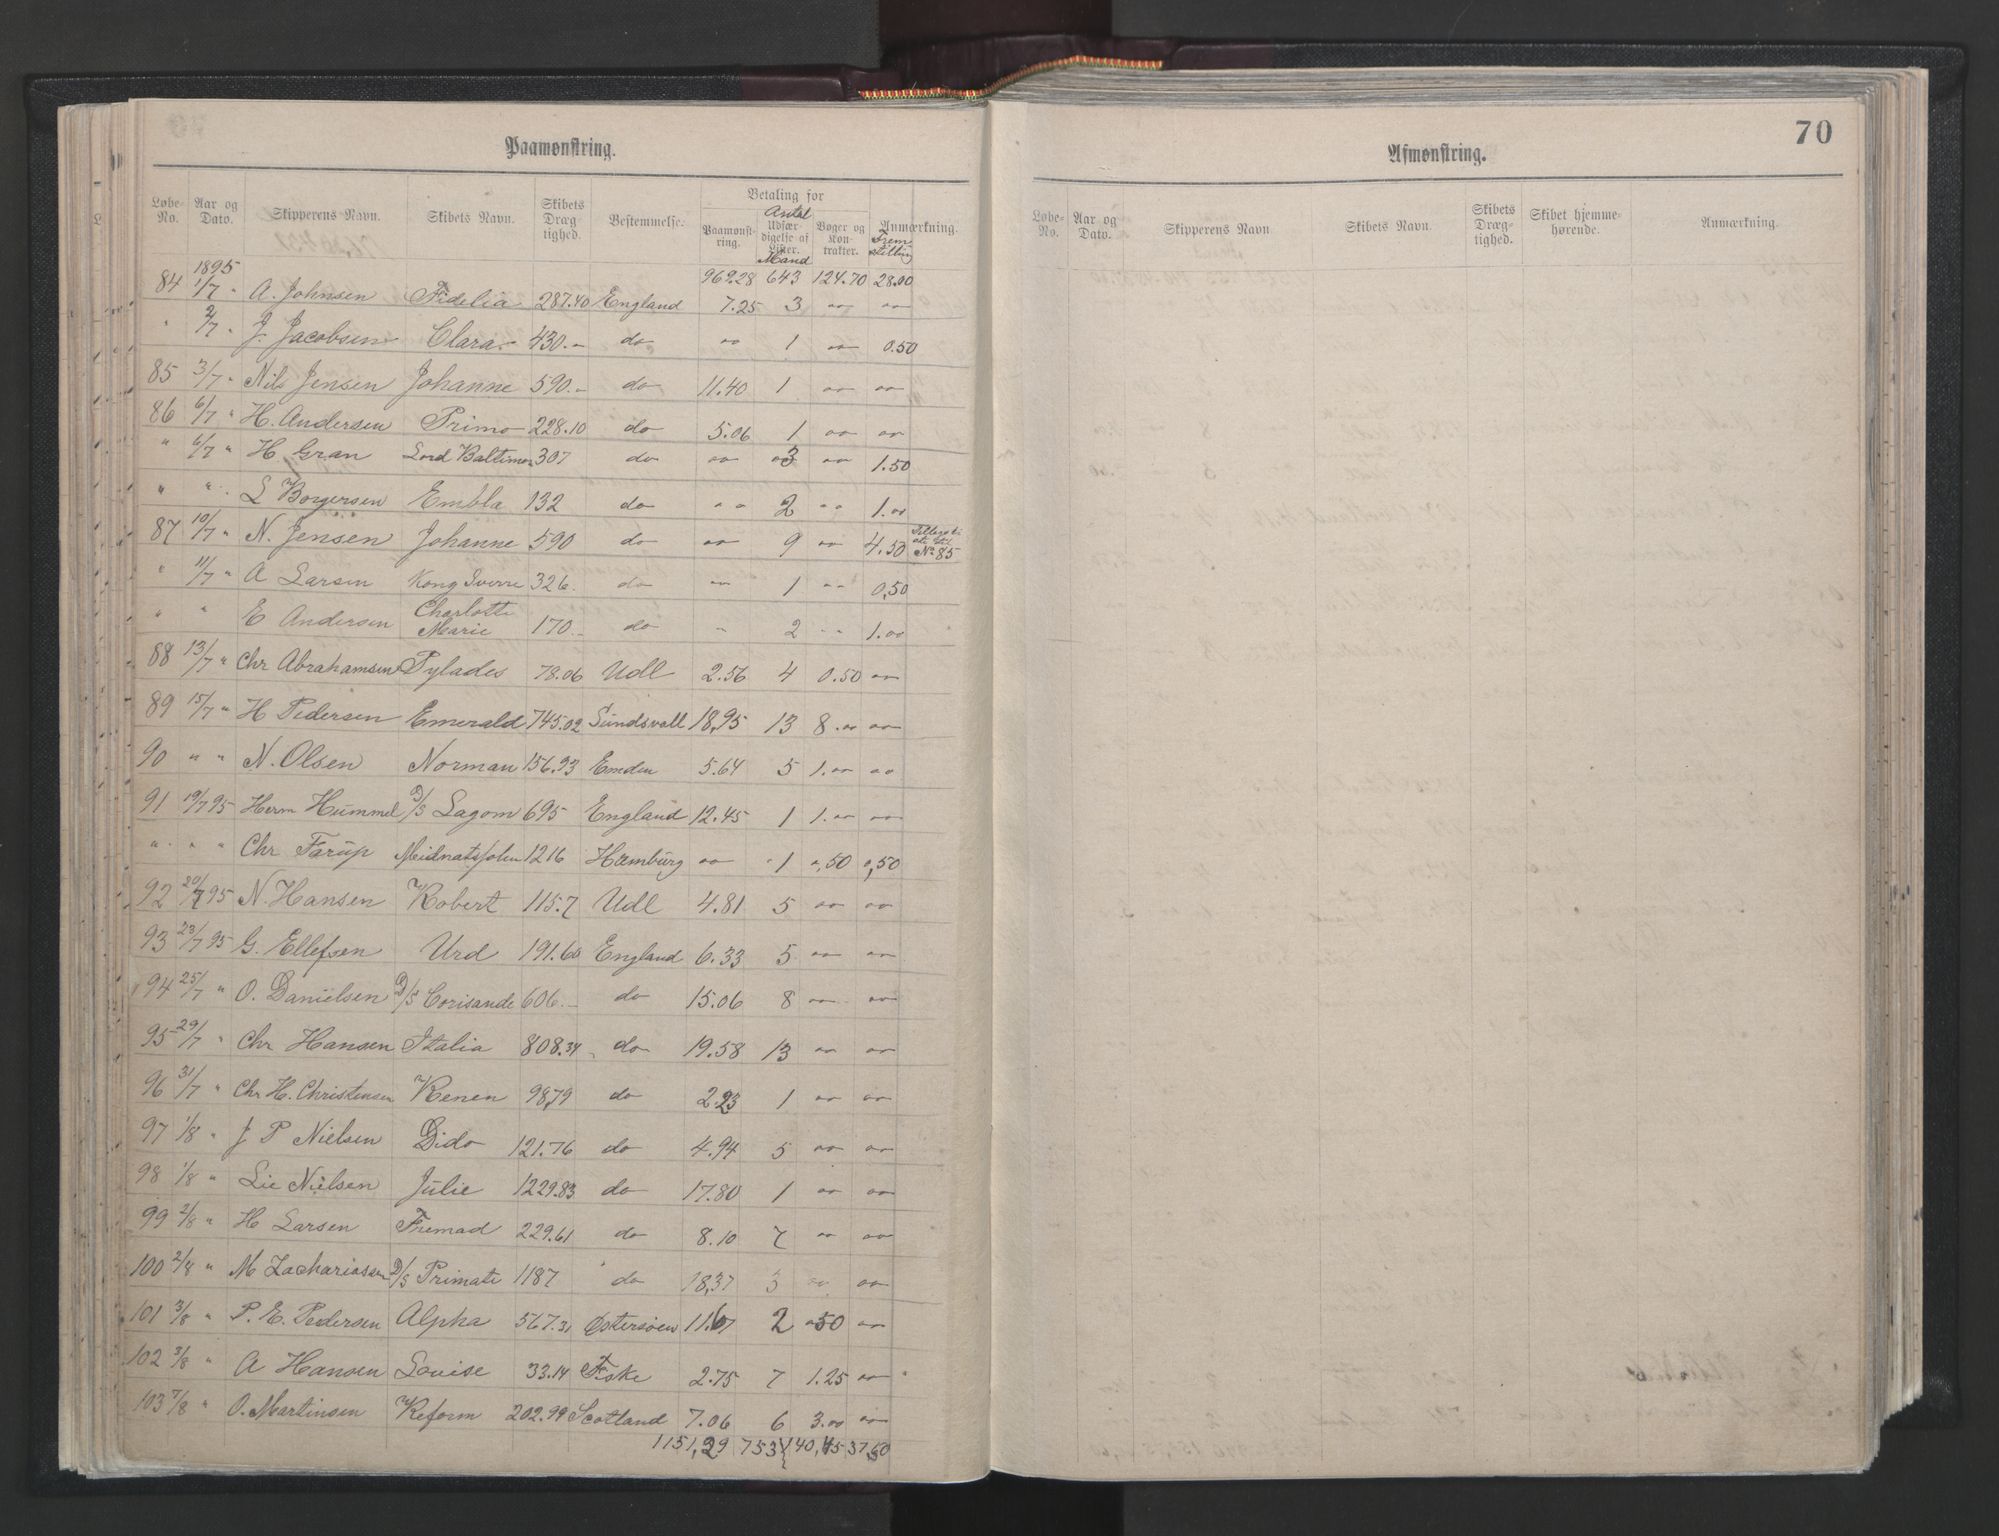 Paamønstring.
Løbe-No. Aar og Dato. Skipperens Navn. Skibets Navn. Skibets Dræg-tighed. Bestemmelse. Betaling for Paamønst-ring. Antal Udfær-digelse af Lister. Mand Bøger og Kon-trakter. Anmærkning. Frem stilling
1895 962.28 643 124.70 28.00
84 1/7 " A. Johnsen Fidelia 287.40 England 7.25 3 " "
" 2/7 " J. Jacobsen Clara 430.- do " 1 " 0.50
85 3/7 " Nils Jensen Johanne 590.- do 11.40 1 " "
86 6/7 " H. Andersen Primo 228.10 do 5.06 1 " "
" 6/7 " H Gran Lord Baltimor 307 do " 3 " 1.50
" " L Borgersen Embla 132 do " 2 " 1.00
87 10/7 " N. Jensen Johanne 590 do " 9 " 4.50 No 85
" 11/7 " A Larsen Kong Sverre 326. do " 1 " 0,50
" " E Andersen Charlotte Marie 170.- do " 2 " 1.00
88 13/7 " Chr Abrahamsen Pylades 78.06 Udl 2.56 4 0.50 "
89 15/7 " H Pedersen Emerald 745.02 Sundsvall 18,95 13 8.00 "
90 " " N. Olsen Norman 156.93 Emden 5.64 5 1.00 "
91 19/7 95 Herm Hummel D/S Lagom 695 England 12.45 1 1.00 "
" " " Chr Farup Meidnatssolen 1216 Hamburg " 1 0,50 0,50
92 20/7 95 N. Hansen Robert 115.7 Udl 4.81 5 " "
93 23/7 95 G. Ellefsen Urd 191.60 England 6.33 5 " "
94 25/7 " O. Danielsen D/S Corisande 606.- do 15.06 8 " "
95 29/7 " Chr Hansen Italia 808.34 do 19.58 13 " "
96 31/7 " Chr H. Christensen Renen 98,79 do 2.23 1 " "
97 1/8 " J P Nielsen Dido 121.76 do 4.94 5 " "
98 1/8 " Lie Nielsen Julie 1229.83 do 17.80 1 " "
99 2/8 " H Larsen Fremad 229.61 do 8.10 7 " "
100 2/8 " M Zachariassen D/S Primate 1187 do 18,37 3 " "
101 3/8 " P. E. Pedersen Alpha 567.31 Østersøen 11.67 2 "50 "
102 3/8 " A Hansen Louise 33.14 Fiske 2.75 7 1.25 "
103 7/8 " O. Martinsen Reform 202.99 Scotland 7.06 6 3.00 "
1151,29 753 140,45 37,50
70
Afmønstring.
Løbe-No. Aar og Dato. Skipperens Navn. Skibets Navn. Skibets Dræg-tighed. Skibet hjemme-hørende. Anmærkning.